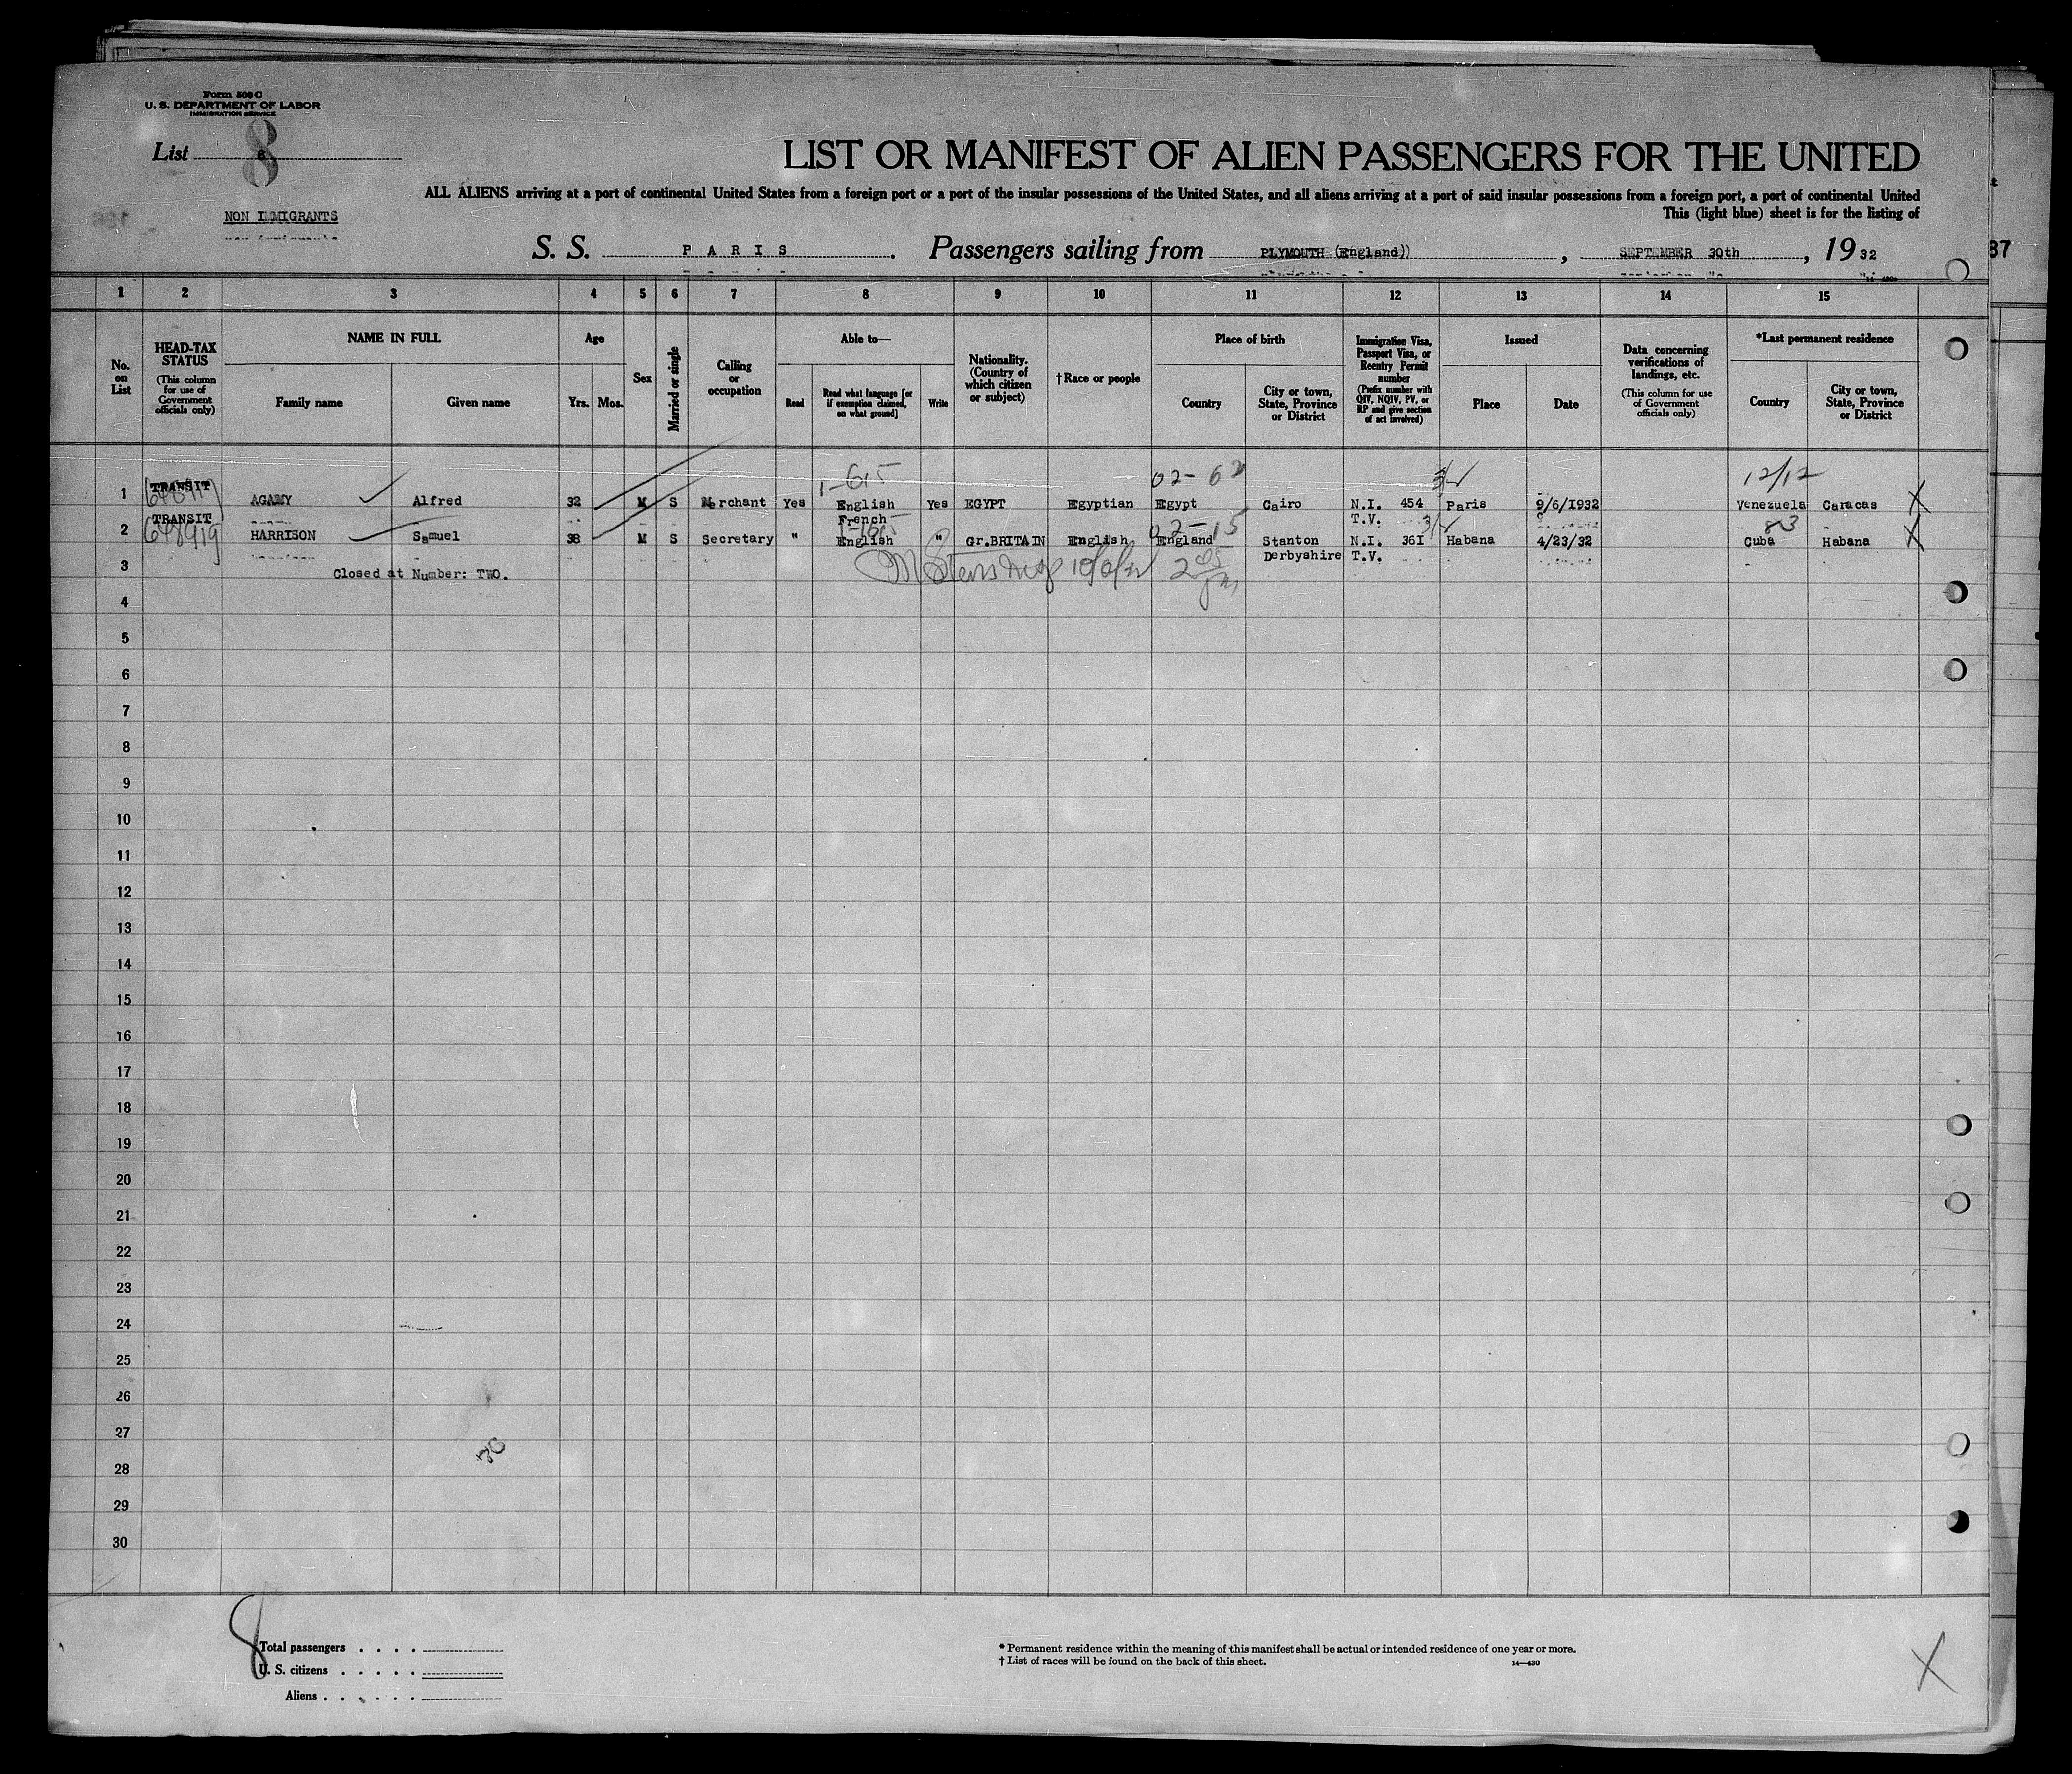 Form 500 C
U. S. DEPARTMENT OF LABOR
IMMIGRATION SERVICE
List 8
LIST OR MANIFEST OF ALIEN PASSENGERS FOR THE UNITED
ALL ALIENS arriving at a port of continental United States from a foreign port or a port of the insular possessions of the United States, and all aliens arriving at a port of said insular possessions from a foreign port, a port of continental United
This (light blue) sheet is for the listing of
NON IMMIGRANTS
S. S. PARIS. Passengers sailing from PLYMOUTH (England)), SEPTEMBER 30th, 19 32
37
1 2 3 4 5 6 7 8 9 10 11 12 13 14 15
No. on List
HEAD-TAX STATUS
(This column for use of Government officials only)
NAME IN FULL
Family name
Given name
Age
Yrs. Mos.
Sex
Married or single
Calling or occupation
Able to—
Read
Read what language [or if exemption claimed, on what ground]
Write
Nationality. (Country of which citizen or subject)
†Race or people
Place of birth
Country
City or town, State, Province or District
Immigration Visa, Passport Visa, or Reentry Permit number
(Prefix number with QIV, NQIV, PV, or RP and give section of act involved)
Issued
Place
Date
Data concerning verifications of landings, etc.
(This column for use of Government officials only)
*Last permanent residence
Country
City or town, State, Province or District
1-615 02-62 12/12
TRANSIT
1 AGAMY Alfred 32 M S Merchant Yes English Yes EGYPT Egyptian Egypt Cairo N.I. 454 Paris 9/6/1932 Venezuela Caracas X
French T.V.
TRANSIT
02-15 83
2 648919 HARRISON Samuel 38 M S Secretary " English " Gr.BRITAIN English England Stanton N.I. 361 Habana 4/23/32 Cuba Habana X
Derbyshire T.V.
3 Closed at Number: TWO.
4
5
6
7
8
9
10
11
12
13
14
15
16
17
18
19
20
21
22
23
24
25
26
27
28
29
30
8
Total passengers . . . .
U. S. citizens . . . . .
Aliens . . . . . .
* Permanent residence within the meaning of this manifest shall be actual or intended residence of one year or more.
† List of races will be found on the back of this sheet.
14—430
X